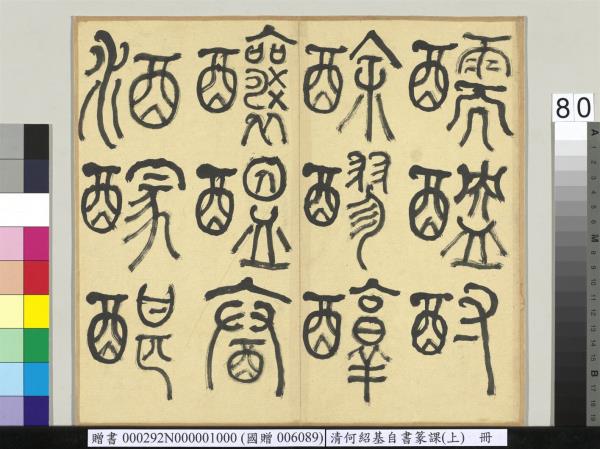 醹醠酎
酴醪醇
釀醞
酒
80
贈書 000292N000001000 (國贈 006089) 清何紹基自書篆課(上) 冊